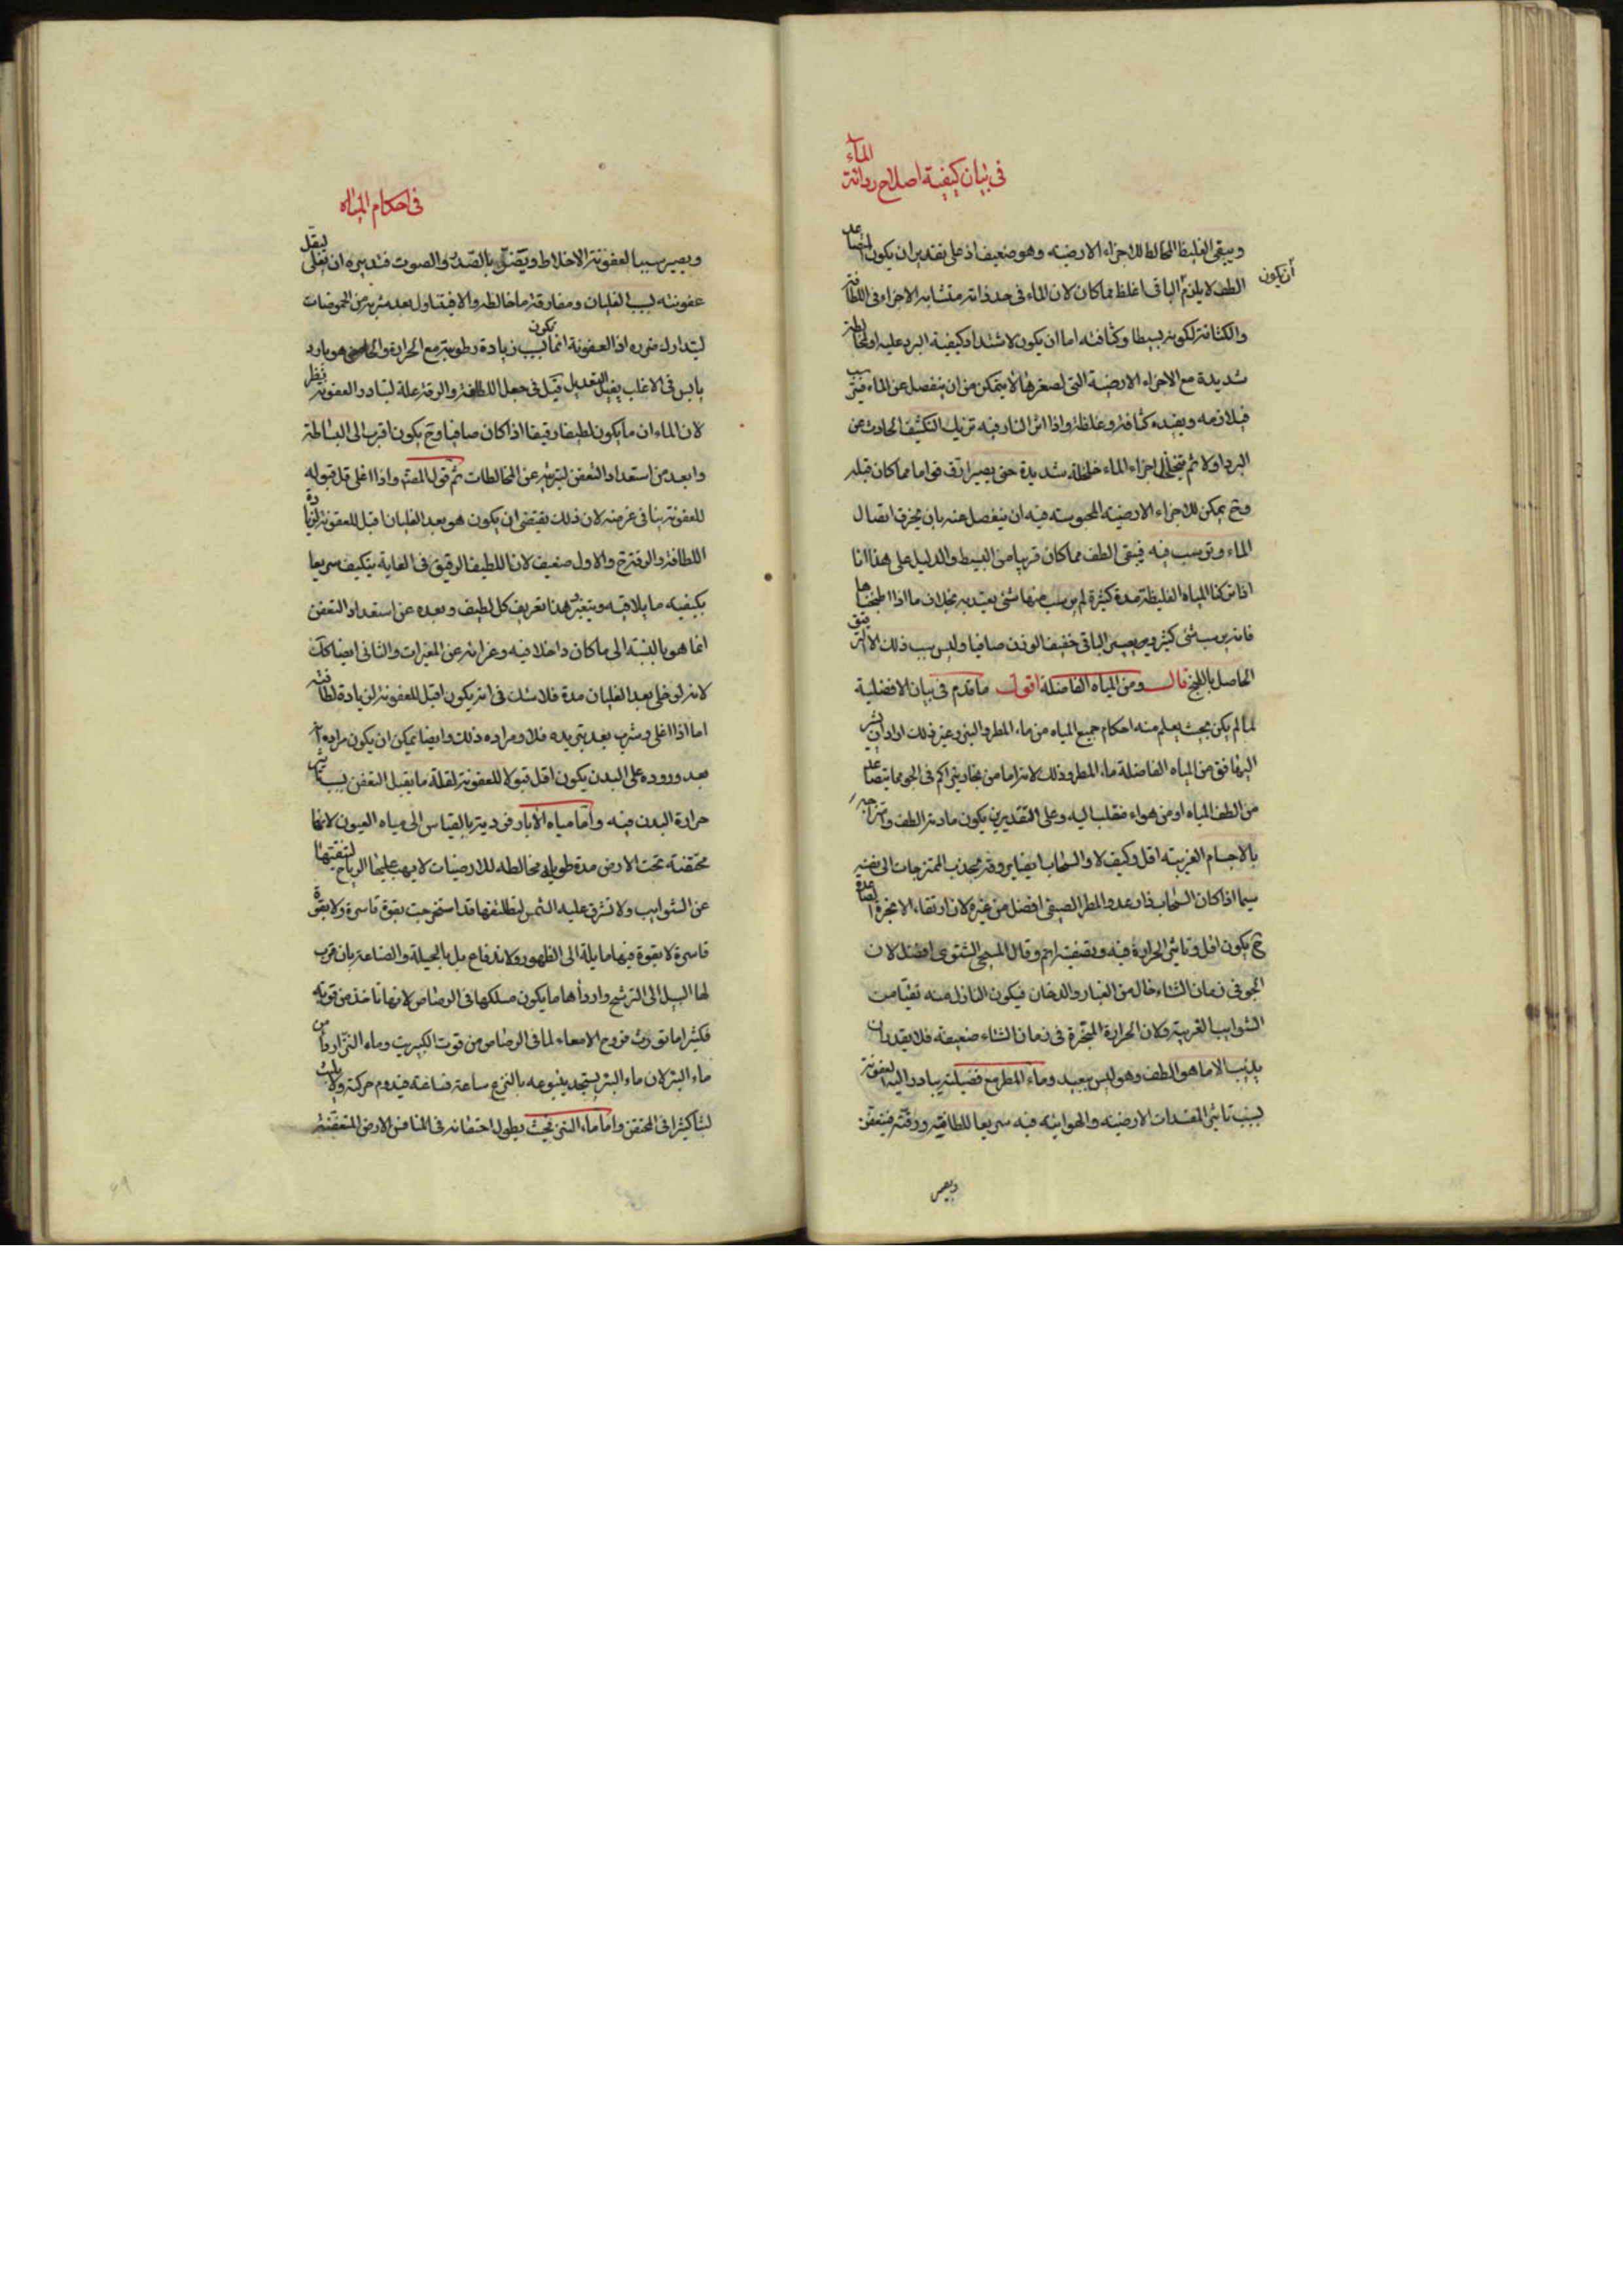 الماء
في بيان كيفية اصلاح رداءة
ويبقى الغليظ المخالط للاجزاء الارضية وهو ضعيف اذ على تقدير ان يكون المتصاعد
الطف لا يلزم ان يكون الباقي اغلظ مما كان لان الماء في حد ذاته متشابه الاجزاء في اللطافة
والكثافة لكونه بسيطا وكثافته اما ان يكون لاشتداد كيفية البرد عليه او لمخالطة
شديدة مع الاجزاء الارضية التي لصغرها لا يتمكن من ان ينفصل عن الماء فيترسب
فيلازمه ويفيده كثافة وغلظة واذا اثر النار فيه تزيل التكثيف الحادث عن
البرد اولا ثم يتخلخل اجزاء الماء خلخلة شديدة حتى يصير ارق قواما مما كان قبله
وح يمكن للاجزاء الارضية المحبوسة فيه ان ينفصل عنه بان يخرق اتصال
الماء وترسب فيه فيبقى الطف مما كان قريبا من البسيط والدليل على هذا انا
اذا تركنا المياه الغليظة مدة كثيرة لم يرسب منها شئ يعتد به بخلاف ما اذا طبخناها
فانه يرسب شئ كثير ويصير الباقي خفيف الوزن صافيا وليس سبب ذلك الا الترقيق
الحاصل بالطبخ قال ومن المياه الفاضلة اقول ما قدم في بيان الافضلية
لما لم يكن بحيث يعلم منه احكام جميع المياه من ماء المطر والبئر وغير ذلك اراد ان يشير
اليها فق من المياه الفاضلة ماء المطر وذلك لانه اما من بخار يتراكم في الجو مما يتصاعد
من الطف المياه او من هواء منقلب اليه وعلى التقديرين يكون مادته الطف وامتزاجه
بالاجسام الغريبة اقل وكيف لا والسحاب ايضا بروقه يجذب الممتزجات الى نفسه
سيما اذا كان السحاب ذا رعد والمطر الصيفي افضل من غيره لان ارتقاء الابخرة المتصاعدة
ح يكون اقل وتاثير الحرارة فيه وتصفيته اتم وقال المسيحي الشتوي افضل لان
الجو في زمان الشتاء خال من الغبار والدخان فيكون النازل منه نقيا من
الشوايب الغريبة ولان الحرارة المبخرة في زمان الشتاء ضعيفة فلا يقدر ان
يذيب الا ما هو الطف وهو ليس ببعيد وماء المطر مع فضيلته يبادر اليه العفونة
لسبب تاثير المفسدات الارضية والهوائية فيه سريعا للطافته ورقته فيتعفن
ويصير
في احكام المياه
ويصير سببا لعفونة الاخلاط ويضر بالصدر والصوت فتدبيره ان يغلى ليقل
عفونته لسبب الغليان ومفارقة ما خالطه والا فيتناول بعد شربه من الحموضات
ليتدارك ضرره اذ العفونة انما يكون لسبب زيادة رطوبة مع الحرارة والحامض هو بارد
يابس في الاغلب يقبل التعديل قيل في جعل اللطافة والرقة علة لتبادر العفونة نظر
لان الماء ان ما يكون لطيفا رقيقا اذا كان صافيا وح يكون اقرب الى البساطة
وابعد من استعداد التعفن لتبريه عن المخالطات ثم قول المصنف واذا اغلى قل قبوله
للعفونة ينافي غرضه لان ذلك يقتضي ان يكون هو بعد الغليان اقبل للعفونة لزيادة
اللطافة والرقة ح والاول ضعيف لان اللطيف الرقيق في الغاية يتكيف سريعا
بكيفية ما يلاقيه ويتغير هذا تعريف كل لطيف وبعده عن استعداد التعفن
انما هو بالنسبة الى ما كان داخلا فيه وعزلته عن المغيرات والثاني ايضا كك
لانه لو خلي بعد الغليان مدة فلا شك في انه يكون اقبل للعفونة لزيادة لطافته
اما اذا اغلى وشرب بعد تبريده فلا ومراده ذلك وايضا يمكن ان يكون مراده انه
بعد وروده على البدن يكون اقل قبولا للعفونة لقلة ما يقبل التعفن بسبب تاثير
حرارة البدن فيه واما مياه الابار فردية بالقياس الى مياه العيون لانها
محتقنة تحت الارض مدة طويلة مخالطة للارضيات لا يهب عليها الرياح لتنقيتها
عن الشوايب ولا تشرق عليه الشمس لتلطيفها قد استخرجت بقوة قاسرة ولا بقوة
قاسرة لا بقوة فيها مايلة الى الظهور ولاندفاع بل بالحيلة والصناعة بان قرب
لها السبيل الى الترشح واردأها ما يكون مسلكها في الرصاص لانها تاخذ من قوته
فكثيرا ما تورث قروح الامعاء لما في الرصاص من قوت الكبريت وماء النز اردأ من
ماء البئر لان ماء البئر يستجد ينبوعه بالنزع ساعة فساعة فيدوم حركته ولا يلبث
لبثا كثيرا في المحتقن واما ماء النز بحيث يطول احتقانه في المنافس الارض المتعفنة